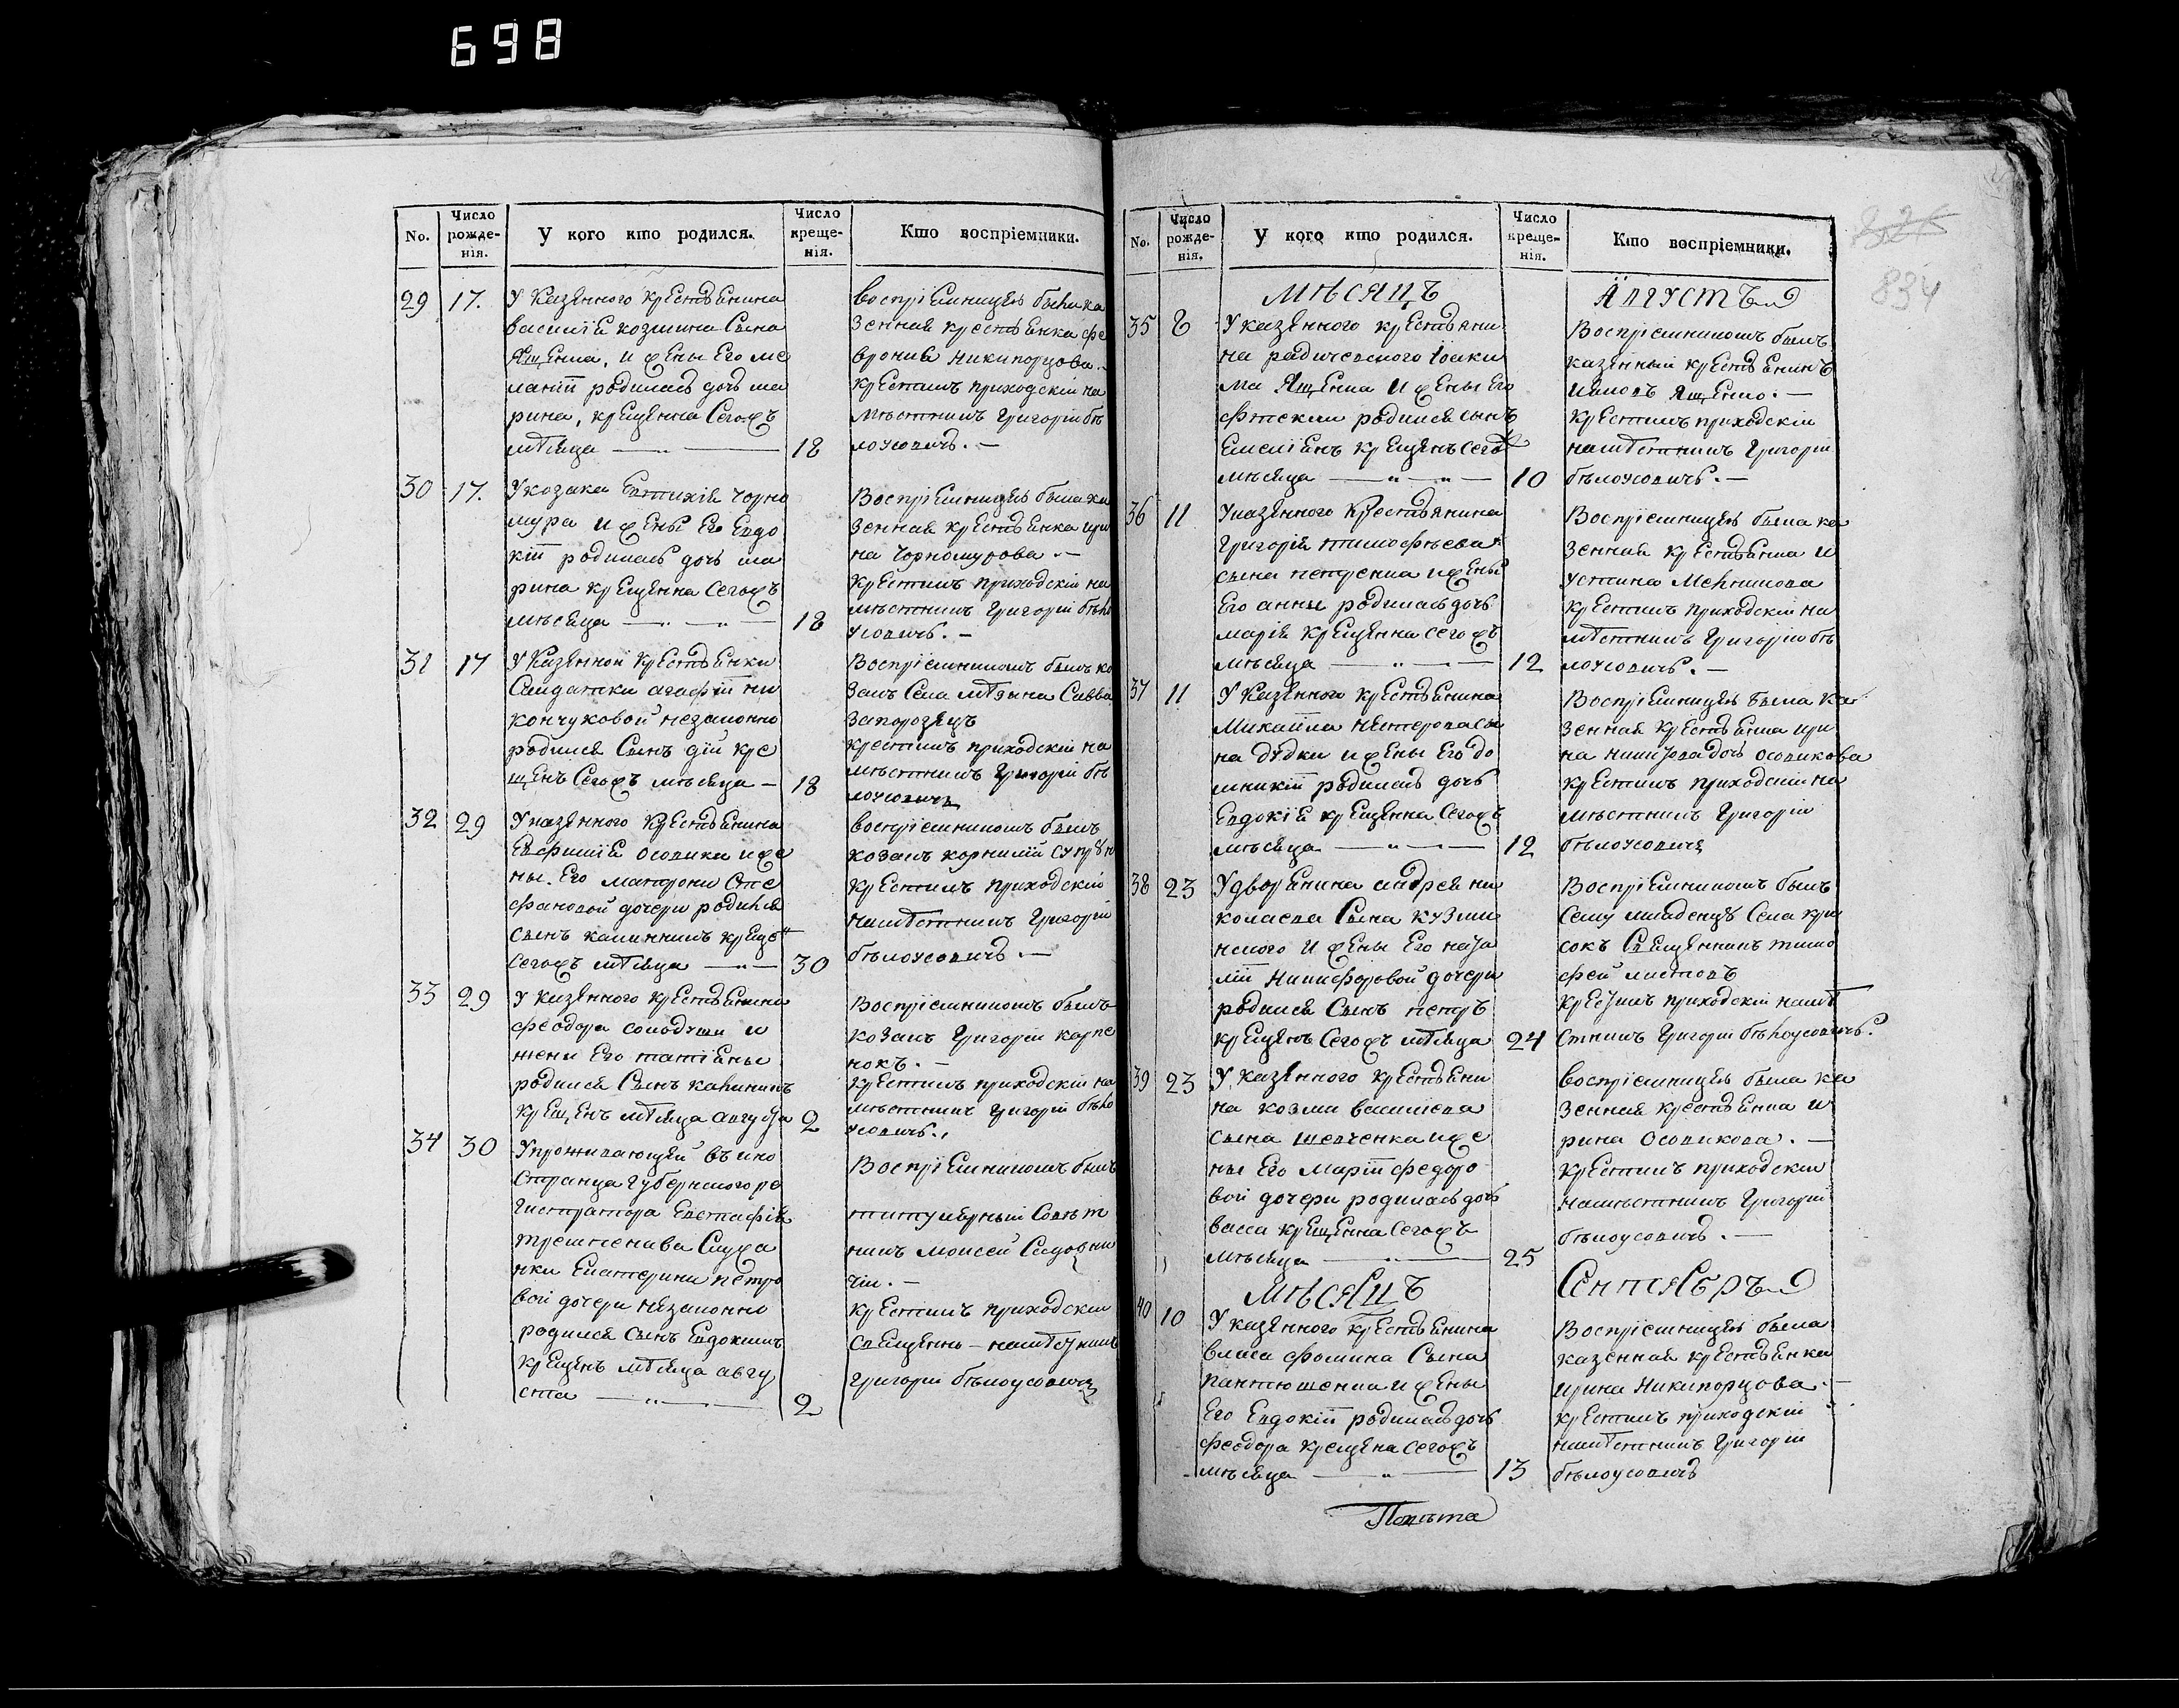 698
No.
Число рожде-нія.
У кого кто родился.
Число креще-нія.
Кто воспріемники.
29 17.
У Казенного крестьянина
василія козмина сына
Ященка, и жены Его ме
ланіи родилась дочь ма
рина, крещенна Сегожъ
мѣсяца 18
воспріемницею была ка
зенная крестьянка фе
вронія никипорцова.
крестилъ приходскій на
мѣстникъ Григорій бѣ
лоусовичь.
30 17.
У козака Евтихія Чорно
мура и жены Его Евдо
кіи родилась дочь ма
рина крещенна Сегожъ
мѣсяца 18
Воспріемницею была ка
зенная крестьянка ири
на Чорномурова
крестилъ приходскій на
мѣстникъ Григорій бѣло
усовичь.
31 17
У Казенной крестьянки
Салдатки агафіи ни
кончуковой незаконно
родился Сынъ дій кре
щенъ Сегожъ мѣсяца 18
Воспріемникомъ былъ ко
закъ Села Савва
Запорожецъ
крестилъ приходскій на
мѣстникъ Григорій бѣ
лоусовичь
32 29
У казенного крестьянина
Евфимія осовика и же
ны Его матрони Сте
фановой дочери родился
сынъ калинникъ креще
Сегожъ мѣсяца 30
воспріемникомъ былъ
козакъ корнилій супрун
крестилъ приходскій
намѣстникъ Григорій
бѣлоусовичь.
33 29
У казенного крестьянина
феодора солодушки и
жены Его татіяны
родился Сынъ калиникъ
крещенъ мѣсяца августа 2
Воспріемникомъ былъ
козакъ Григорій карпе
нокъ.
крестилъ приходскій на
мѣстникъ Григорій бѣло
усовичь.
34 30
У проживающей въ ино
странца Губернского ре
гистратора Евстафія
Служа
нки Екатерины петро
вой дочери незаконно
родился сынъ Евдокимъ
крещенъ мѣсяца авгу
ста 2
Воспріемникомъ былъ
титулярный Совѣт
никъ Моисей Садовни
чій.
крестилъ приходскій
Священно-намѣстникъ
Григорій бѣлоусовичь
No.
Число рожде-нія.
У кого кто родился.
Число креще-нія.
Кто воспріемники.
826
834
Мѣсяцъ Августъ
35 8
У казенного крестьяни
на радичевского Іоаки
ма Ященка и жены Его
родился сынъ
Емеліянъ крещенъ сегож
мѣсяца 10
Воспріемникомъ былъ
казенный крестьянинъ
Ияковъ Ященко.
крестилъ приходскій
намѣстникъ Григорій
бѣлоусовичь.
36 11
У казенного крестьянина
Григорія тимофѣева
сына петренка и жены
Его анны родилась дочь
марія крещенна сегожъ
мѣсяца 12
Воспріемницею была ка
зенная крестьянка и
устина Мельникова
крестилъ приходскій на
мѣстникъ Григорій бѣ
лоусовичь.
37 11
У Казенного крестьянина
Михаила нестерова сы
на дудки и жены Его до
мникіи родилась дочь
Евдокія крещенна Сегожъ
мѣсяца 12
Воспріемницею была Ка
зенная крестьянка ири
на никитова дочь осовикова
крестилъ приходскій на
мѣстникъ Григорій
бѣлоусовичь
38 23
У дворянина андрея ни
колаева Сына кузми
нского и жены Его ната
ліи Никифоровой дочери
родился Сынъ петръ
крещенъ Сегожъ мѣсяца 24
Воспріемникомъ былъ
Сему младенцу Села кри
сокъ Священникъ тимо
фей листовъ
крестилъ приходскій намѣ
стникъ Григорій бѣлоусовичь.
39 23
У казенного крестьяни
на козми василіева
сына шевченка и же
ны Его Маріи федоро
вой дочери родилась дочь
васса крещенна Сегожъ
мѣсяца 25
воспріемницею была ка
зенная крестьянка и
рина Осовикова.
крестилъ приходскій
намѣстникъ Григорій
бѣлоусовичь.
Мѣсяцъ Сентябръ
40 10
У казенного крестьянина
власа фомина Сына
пантюшенка и жены
Его Евдокіи родилась дочь
феодора крещена сегожъ
мѣсяца 13
Воспріемницею была
казенная крестьянка
ирина Никипорцова.
крестилъ приходскій
намѣстникъ Григорій
бѣлоусовичь